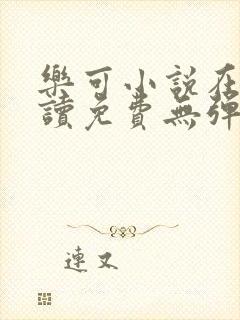 樂可小說在
讀免費無彈
連又